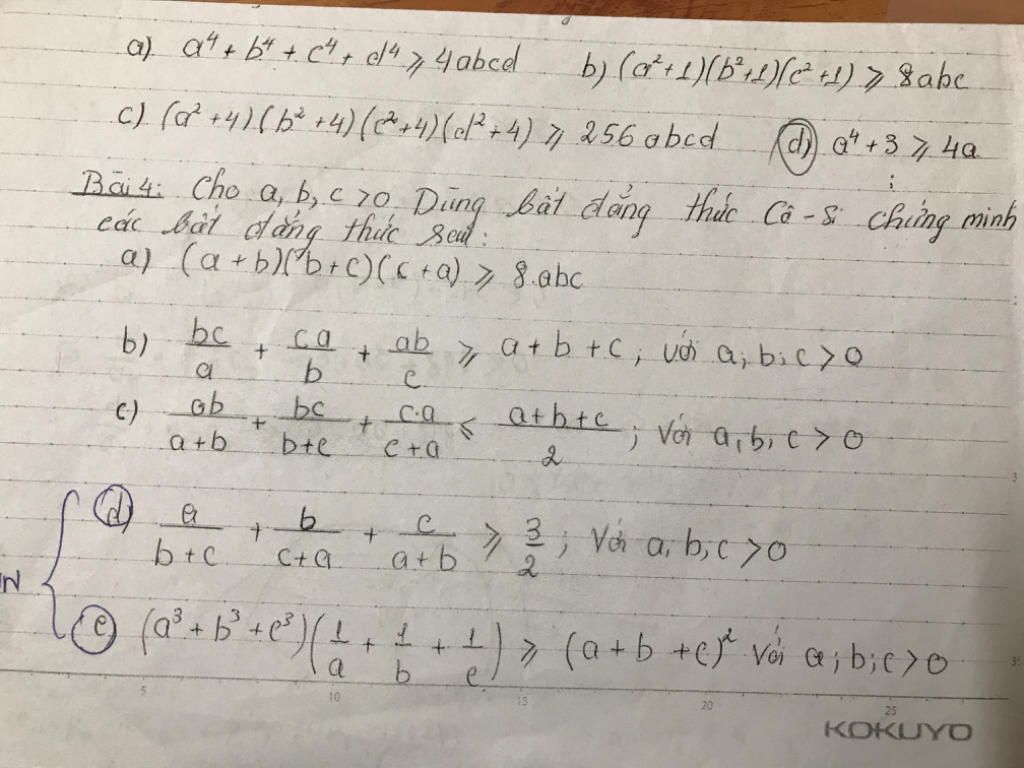 a) a⁴ + b⁴ + c⁴ + d⁴ ⩾ 4abcd b) (a²+1)(b²+1)(c²+1) ⩾ 8abc
c) (a²+4)(b²+4)(c²+4)(d²+4) ⩾ 256abcd d) a⁴+3 ⩾ 4a
Bài 4: Cho a, b, c >0 Dùng bất đẳng thức Cô-Si chứng minh
các bất đẳng thức sau:
a) (a+b)(b+c)(c+a) ⩾ 8.abc
b) bc/a + ca/b + ab/c ⩾ a+b+c; với a; b; c > 0
c) ab/a+b + bc/b+c + c.a/c+a ⩽ a+b+c/2; với a, b, c > 0
d) a/b+c + b/c+a + c/a+b ⩾ 3/2; Với a, b, c >0
e) (a³+b³+c³)(1/a + 1/b + 1/c) ⩾ (a+b+c)² với a; b; c >0
5 10 15 20 25
KOKUYO